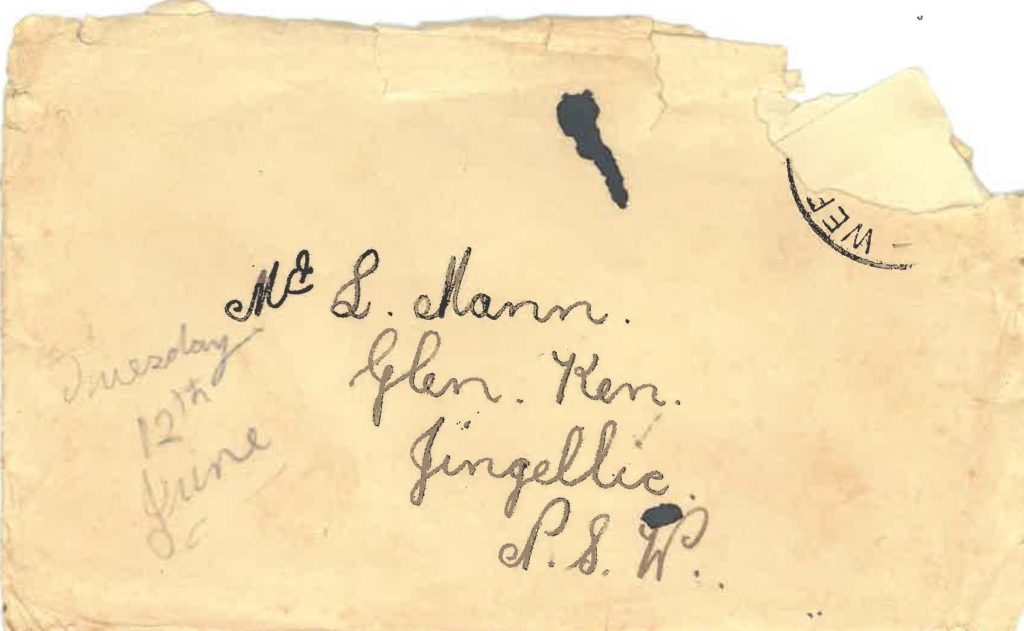 Mr L. Mann.
Glen. Ken.
Jingellic.
N. S. W.
Tuesday
12th
June